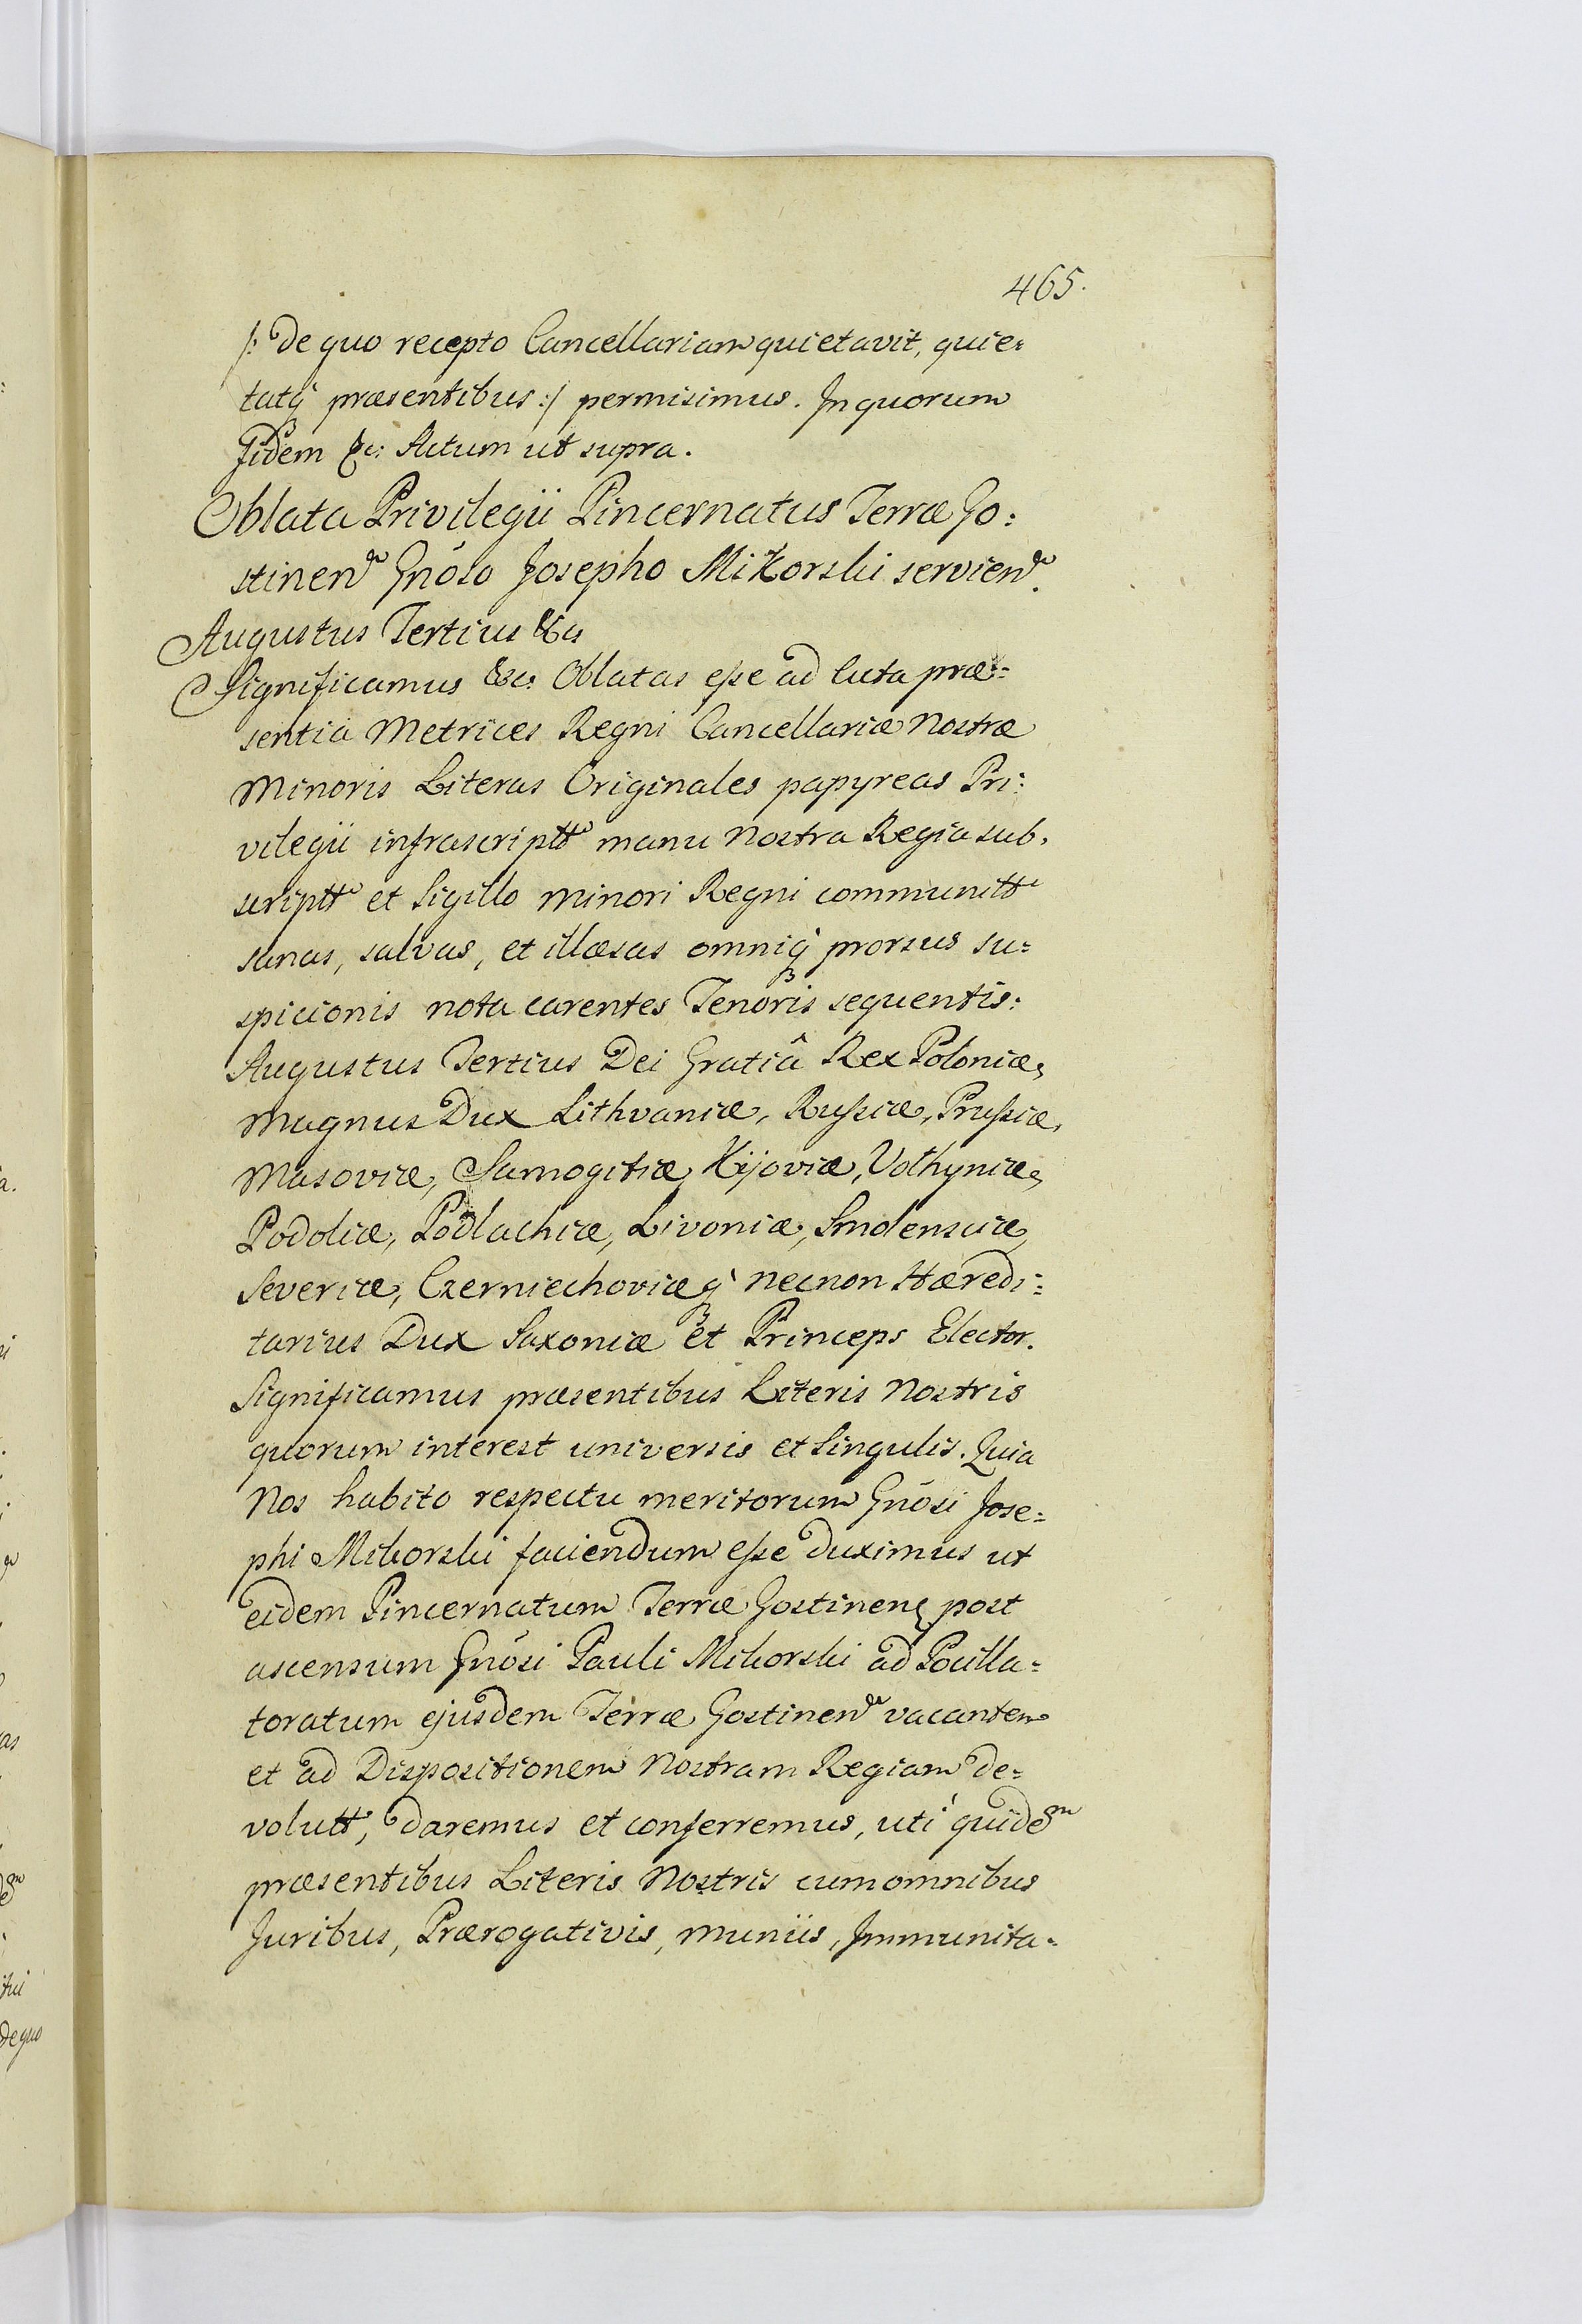 465.
/: De quo recepto Cancellariam quietavit, quie=
tatq́ præsentibus :/ permisimus. In quorum
Fidem &c: Actum ut supra.
Oblata Privilegii Pincernatus Terræ Go:
stinen̄ Gnōso Josepho Mikorski servien̄.
Augustus Tertius &c
Significamus &c: Oblatas eſse ad Acta præ=
sentia Metrices Regni Cancellariæ Nostræ
Minoris Literas Originales papyreas Pri:
vilegii infrascriptt manu Nostra Regia sub,
scriptt et Sigillo minori Regni communitt
sanas, salvas, et illæsas omniq́ prorsus su=
spicionis nota carentes Tenoris sequentis:
Augustus Tertius Dei Gratiâ Rex Poloniæ,
Magnus Dux Lithvaniæ, Ruſsiæ, Pruſsiæ,
Masoviæ, Samogitiæ, Kijoviæ, Volhyniæ,
Podoliæ, Podlachiæ, Livoniæ, Smolensciæ,
Severiæ, Czerniechoviæq́ necnon Hæredi=
tarius Dux Saxoniæ et Princeps Elector.
Significamus præsentibus Literis Nostris
quorum interest universis et singulis. Quia
Nos habito respectu meritorum Gnōsi Jose=
phi Mikorski faciendum eſse duximus ut
eidem Pincernatum Terræ Gostinen̄ post
ascensum Gnōsi Pauli Mikorski ad Pocilla=
toratum ejusdem Terræ Gostinen̄ vacantem
et ad Dispositionem Nostram Regiam de=
volutt, daremus et conferremus, uti quidem
præsentibus Literis Nostris cum omnibus
Juribus, Prærogativis, muniis, Immunita=